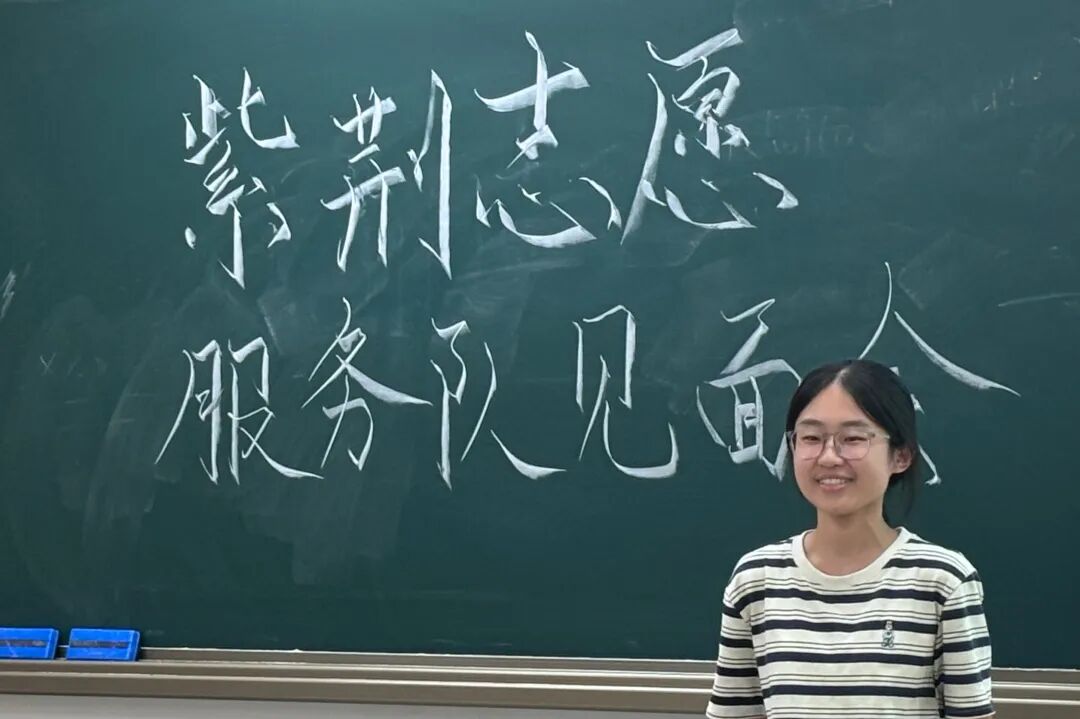 紫荆志愿
服务队见面会